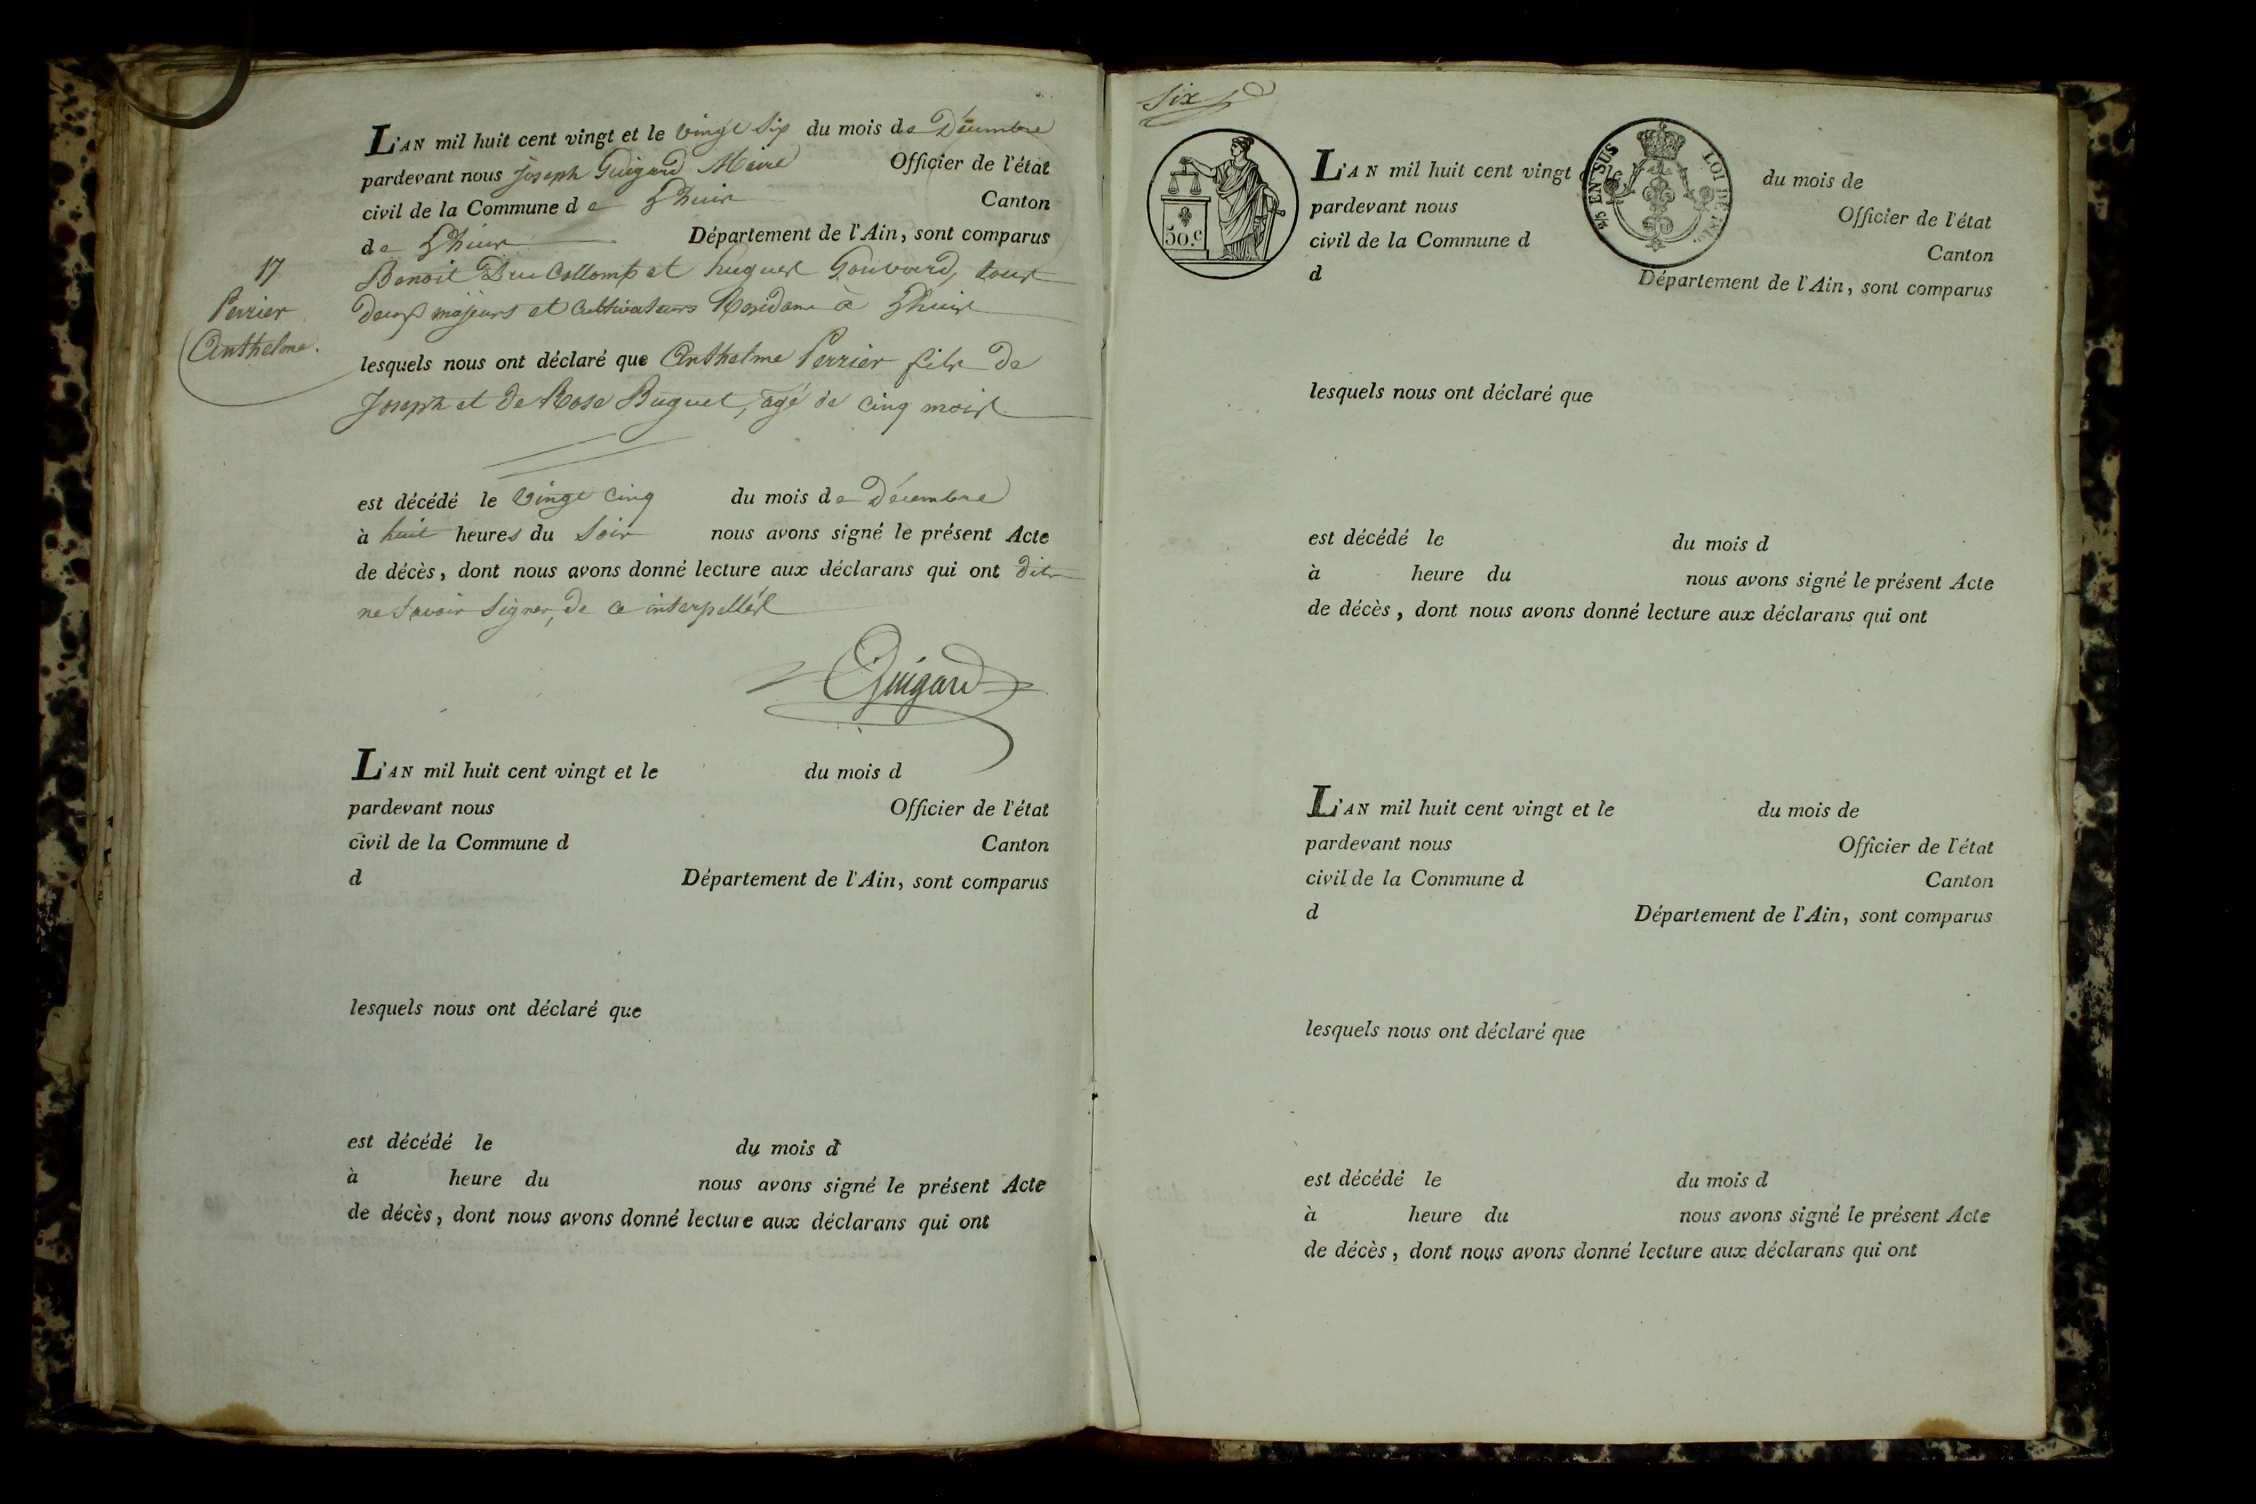 L'AN mil huit cent vingt et le vingt Six du mois de Décembre
pardevant nous Joseph Guigard Maire Officier de l'état
civil de la Commune de Lhuis Canton
de Lhuis Département de l'Ain, sont comparus
Benoit Duc Collomb et hugues Gouvard, tous
deux majeurs et Cultivateurs Residans à Lhuis
17
Perrier
Anthelme.
lesquels nous ont déclaré que Anthelme Perrier fils de
Joseph et de Rose Buguet, agé de cinq mois
est décédé le vingt cinq du mois de Décembre
à huit heures du Soir nous avons signé le présent Acte
de décès, dont nous avons donné lecture aux déclarans qui ont dit
ne Savoir Signer, de ce interpellés
Guigard
L'AN mil huit cent vingt et le du mois d
pardevant nous Officier de l'état
civil de la Commune d Canton
d Département de l'Ain, sont comparus
lesquels nous ont déclaré que
est décédé le du mois d
à heure du nous avons signé le présent Acte
de décès, dont nous avons donné lecture aux déclarans qui ont
Six
50.c
EN SUS
LOI DE
L'AN mil huit cent vingt et le du mois de
pardevant nous Officier de l'état
civil de la Commune d Canton
d Département de l'Ain, sont comparus
lesquels nous ont déclaré que
est décédé le du mois d
à heure du nous avons signé le présent Acte
de décès, dont nous avons donné lecture aux déclarans qui ont
L'AN mil huit cent vingt et le du mois de
pardevant nous Officier de l'état
civil de la Commune d Canton
d Département de l'Ain, sont comparus
lesquels nous ont déclaré que
est décédé le du mois d
à heure du nous avons signé le présent Acte
de décès, dont nous avons donné lecture aux déclarans qui ont